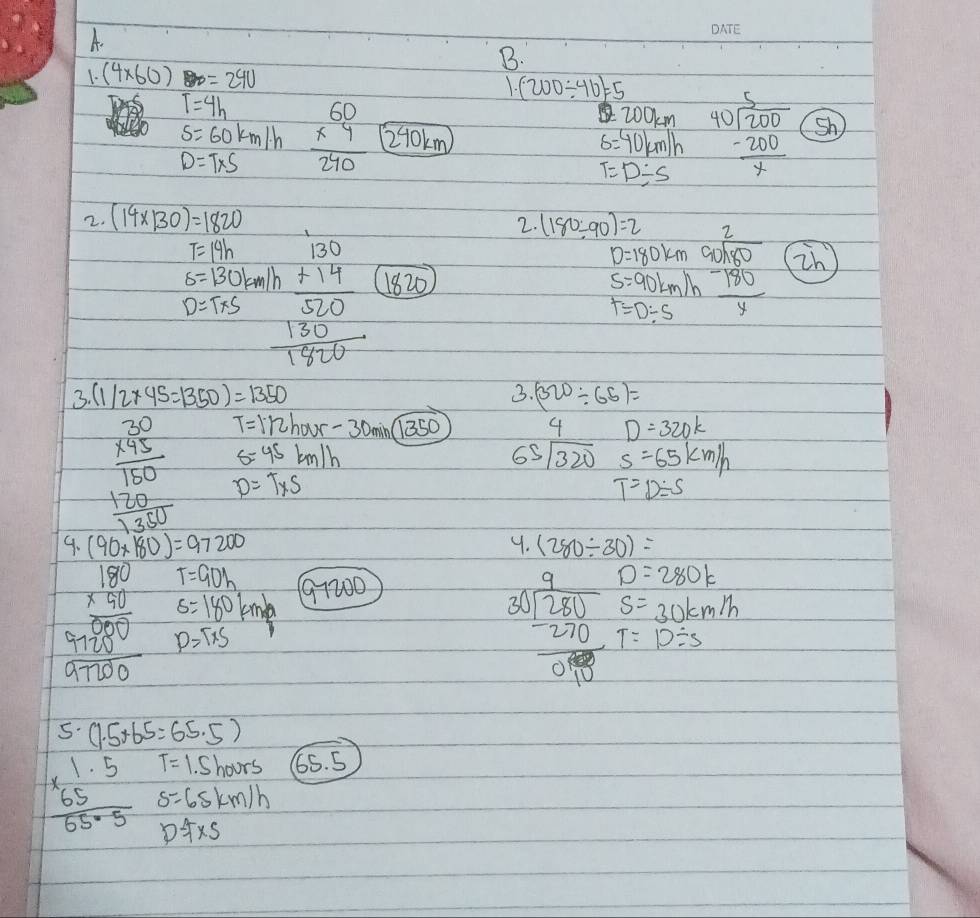 DATE
A.
1. (4×60) = 240
T=4h
S=60km/h
D=T×S
60
× 4
240
240km
2. (14×130)=1820
T=14h
S=130km/h
D=T×S
130
+ 14
520
130
1820
1820
3. (1/2×45=1350)=1350
30
×45
150
120
1350
T=1/2hour-30min
S=45 km/h
D=T×S
1350
4. (90×180)=97200
180
× 90
000
9720
97200
T=90h
S=180km/h
D=T×S
97200
5. (1.5×65=65.5)
1.5
×65
65.5
T=1.5hours
S=65km/h
D=T×S
65.5
B.
1. (200÷40)=5
200km
S=40km/h
T=D÷S
5
40)200
-200
×
5h
2. (180÷90)=2
D=180km
S=90km/h
T=D÷S
2
90)180
-180
×
2h
3. (320÷65)=
4
65)320
D=320k
S=65km/h
T=D÷S
4. (280÷30)=
9
30)280
-270
010
D=280k
S=30km/h
T=D÷S